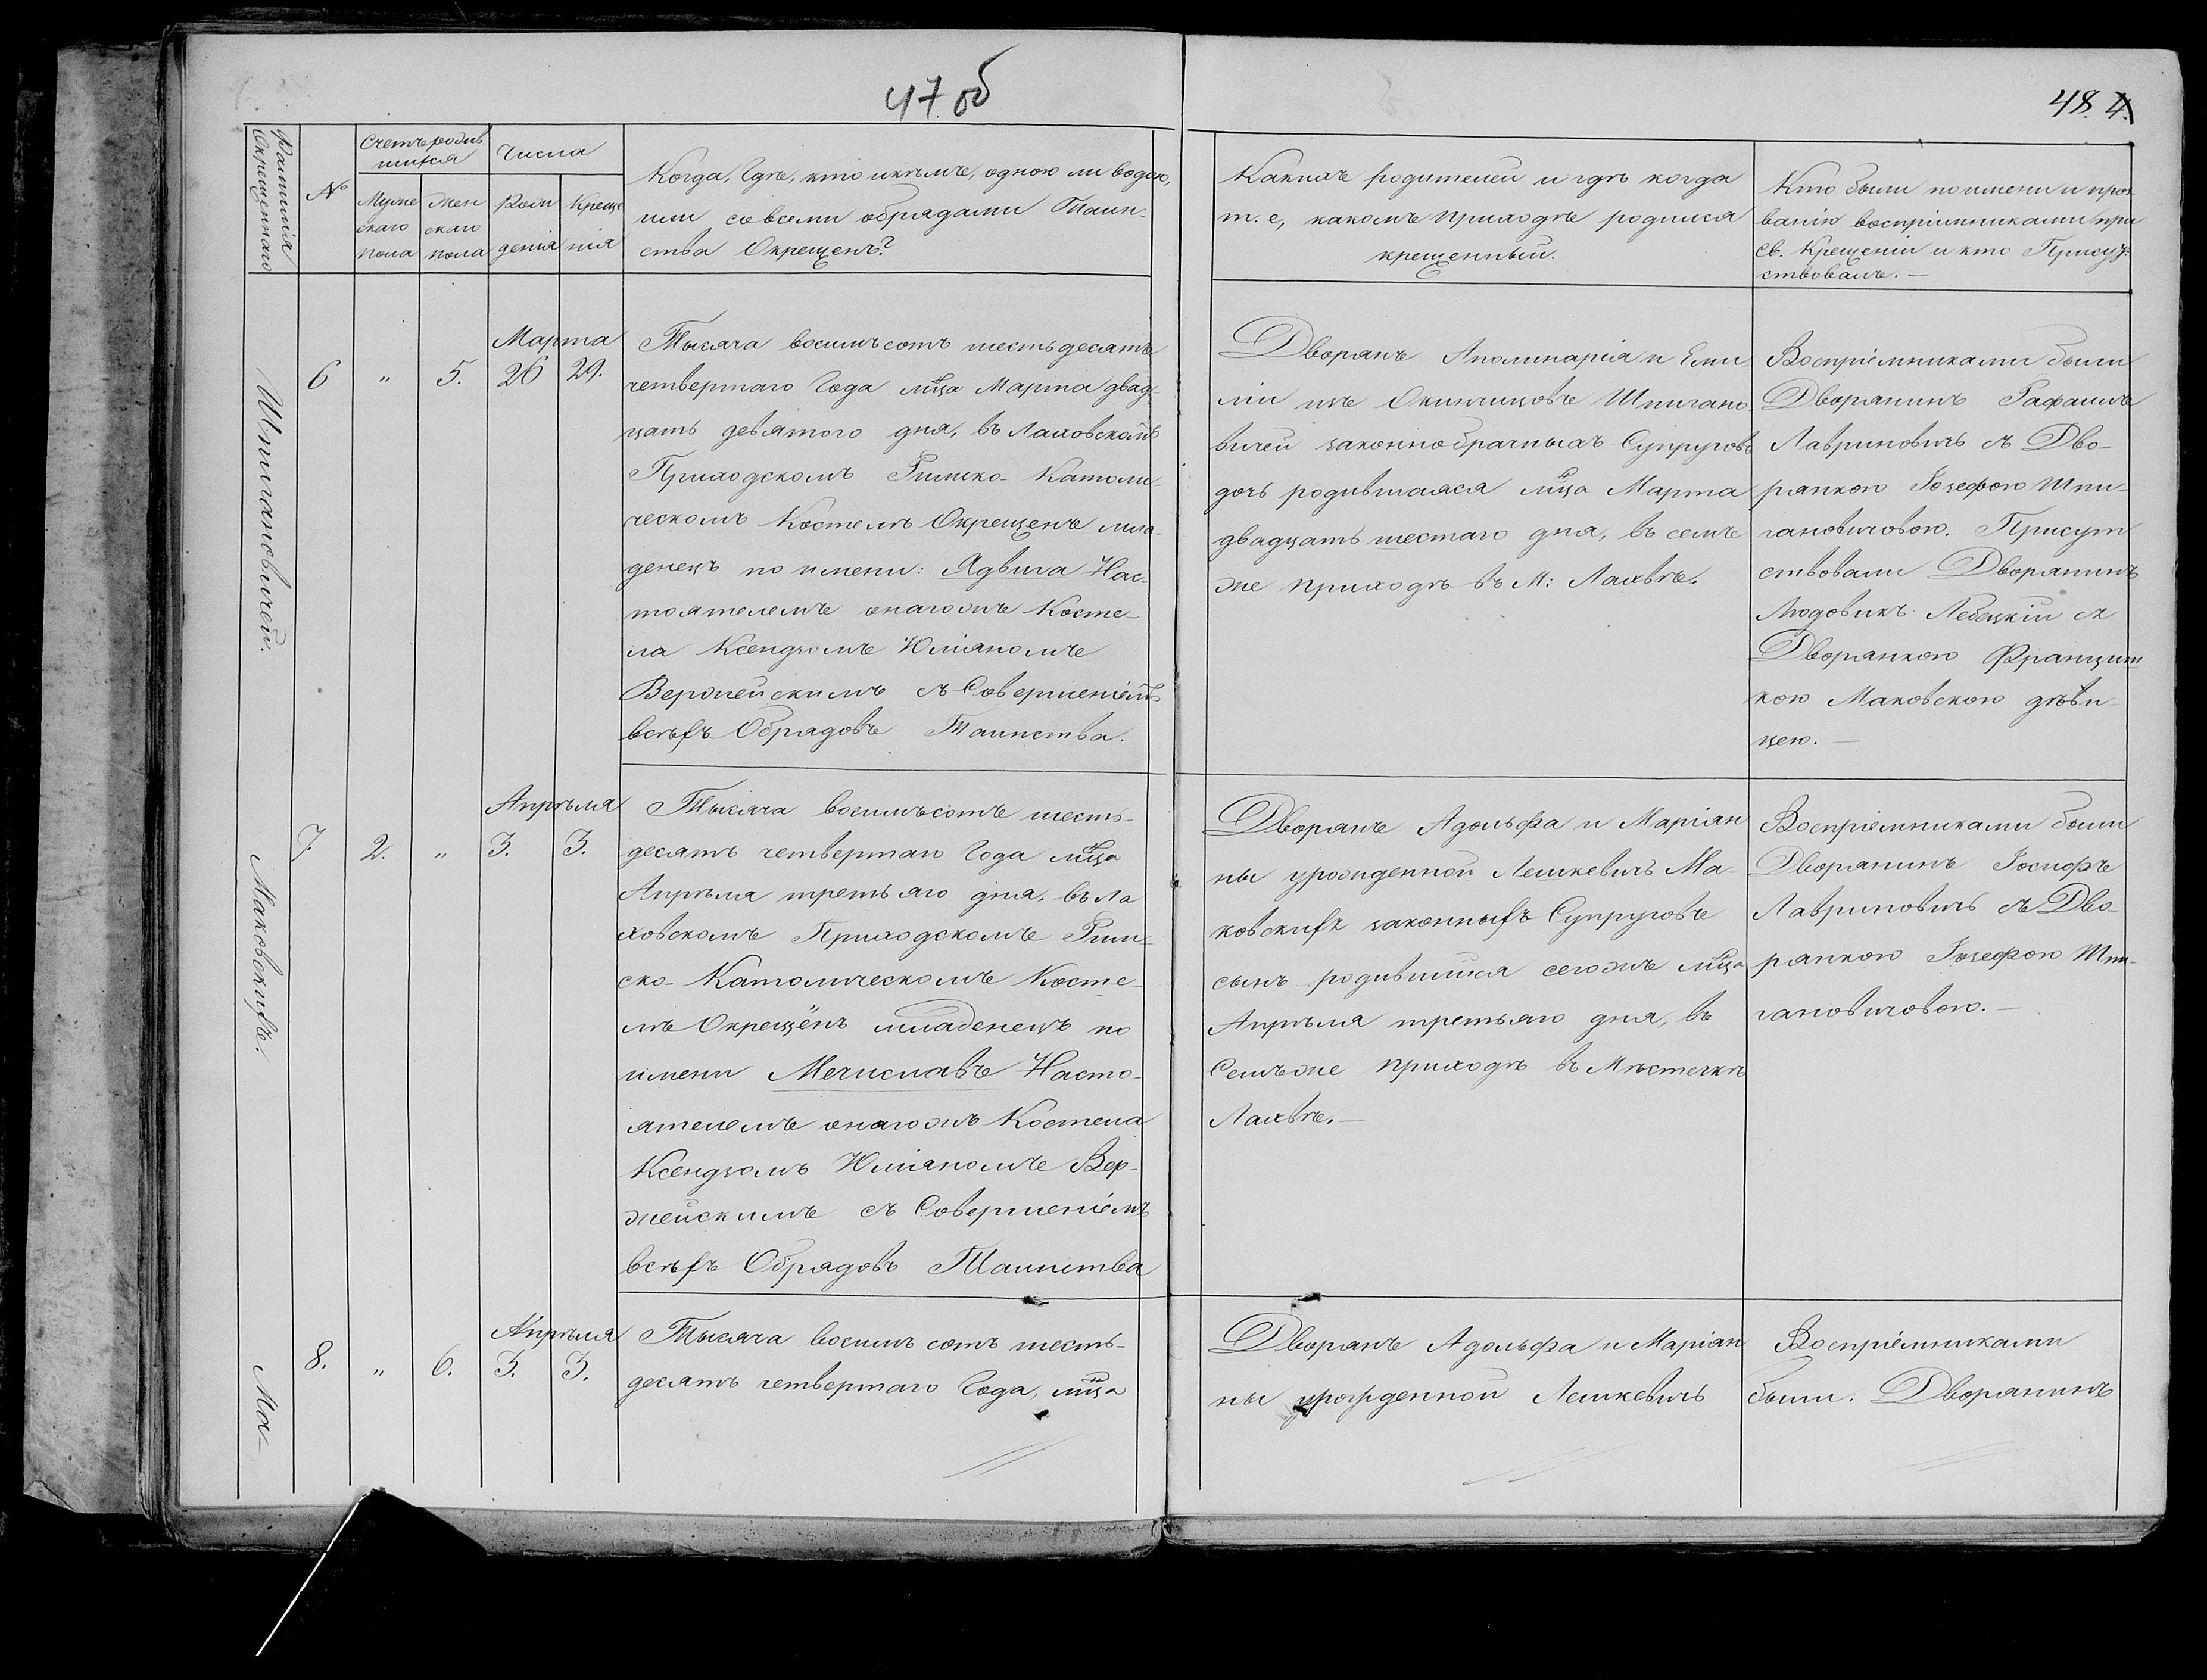 47 об
48. 4.
Фамилія Окрещеннаго
№
Счетъ родив
шихся
Муже
скаго
пола
Жен
скаго
пола
Числа
Рож
денія
Креще
нія
Когда, Гдѣ, кто и кѣмъ, одною ли водою,
или со всеми обрядами Таин-
ства Окрещенъ?
Какихъ родителей и гдѣ когда
т. е, какомъ приходѣ родился
крещенный.
Кто были по имени и проз
ванію воспріимниками при
Св. Крещеніи и кто Присут-
ствовалъ. —
Шпигановичей.
6
"
5.
Марта
26
29.
Тысяча восимъсотъ шестьдесятъ
четвертаго Года мца Марта двад-
цать девятого дня, въ Лаховскомъ
Приходскомъ Римско-Католи-
ческомъ Костелѣ Окрещенъ мла-
денецъ по имени: Ядвига Нас-
тоятелемъ онагожъ Косте-
ла Ксендзомъ Юліаномъ
Вержейскимъ съ Совершеніемъ
всѣхъ Обрядовъ Таинства.
Дворянъ Аполинарія и Еми-
ліи изъ Окинчицовъ Шпигано-
вичей законнобрачныхъ Супруговъ
дочь родившаяся мца Марта
двадцать шестаго дня, въ семъ
же приходѣ въ М: Лахвѣ.
Воспріемниками были
Дворянинъ Рафаилъ
Лавриновичъ съ Дво-
рянкою Іозефою Шпи-
гановичовою. Присут
ствовали Дворянинъ
Людовикъ Лебецкій съ
Дворянкою Францишт
кою Маковскою дѣви-
цею. —
Маковскихъ.
7.
2.
"
Апрѣля
3.
3.
Тысяча восимъсотъ шесть-
десятъ четвертаго Года мца
Апрѣля третьяго дня, въ Ла
ховскомъ Приходскомъ Рим-
ско-Католическомъ Косте-
лѣ Окрещёнъ младенецъ по
имени Мечиславъ Насто-
ятелемъ онагожъ Костела
Ксендзомъ Юліаномъ Вер-
жейскимъ съ Совершеніемъ
всѣхъ Обрядовъ Таинства
Дворянъ Адольфа и Маріан
ны урожденной Лешкевичъ Ма-
ковскихъ законныхъ Супруговъ
сынъ родившійся сегожъ мца
Апрѣля третьяго дня, въ
Семъже приходѣ въ Мѣстечкѣ
Лахвѣ. —
Воспріемниками были
Дворянинъ Іосифъ
Лавриновичъ съ Дво-
рянкою Іозефою Шпи-
гановичовою. —
Ма-
8.
"
6.
Апрѣля
3.
3.
Тысяча восимъ сотъ шесть-
десятъ четвертаго Года, мца
Дворянъ Адольфа и Маріан
ны урожденной Лешкевичъ
Воспріемниками
были: Дворянинъ